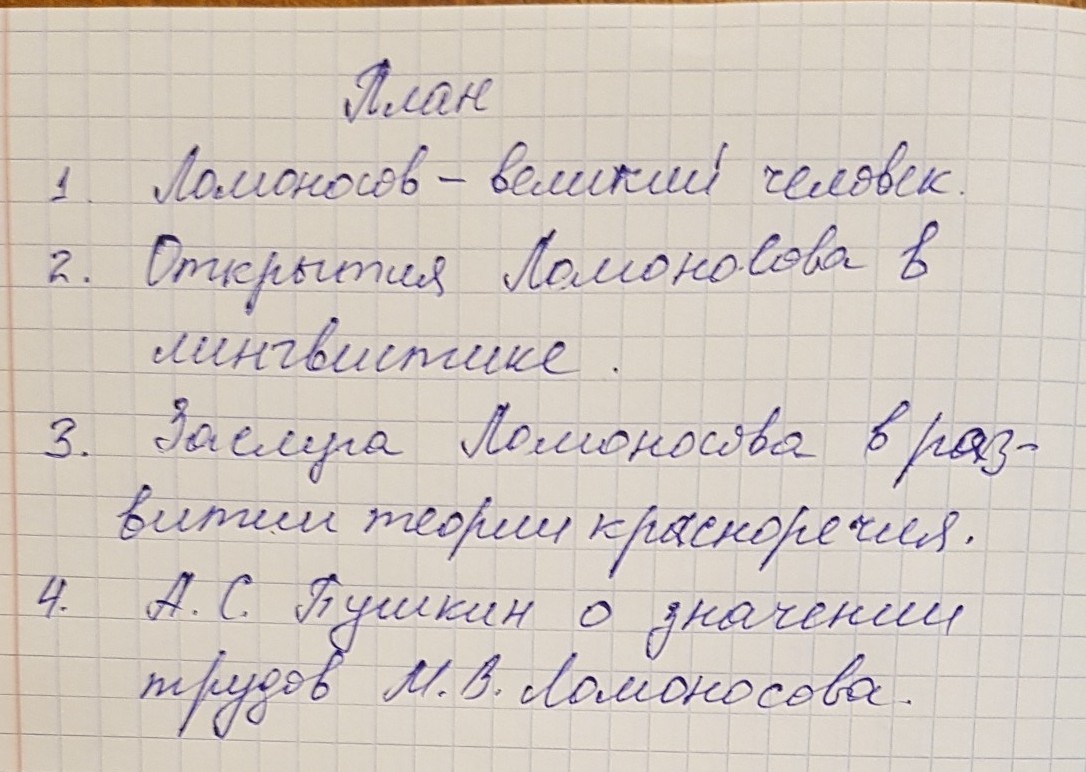 План
1. Ломоносов – великий человек.
2. Открытия Ломоносова в
лингвистике.
3. Заслуга Ломоносова в раз-
витии теории красноречия.
4. А. С. Пушкин о значении
трудов М. В. Ломоносова.